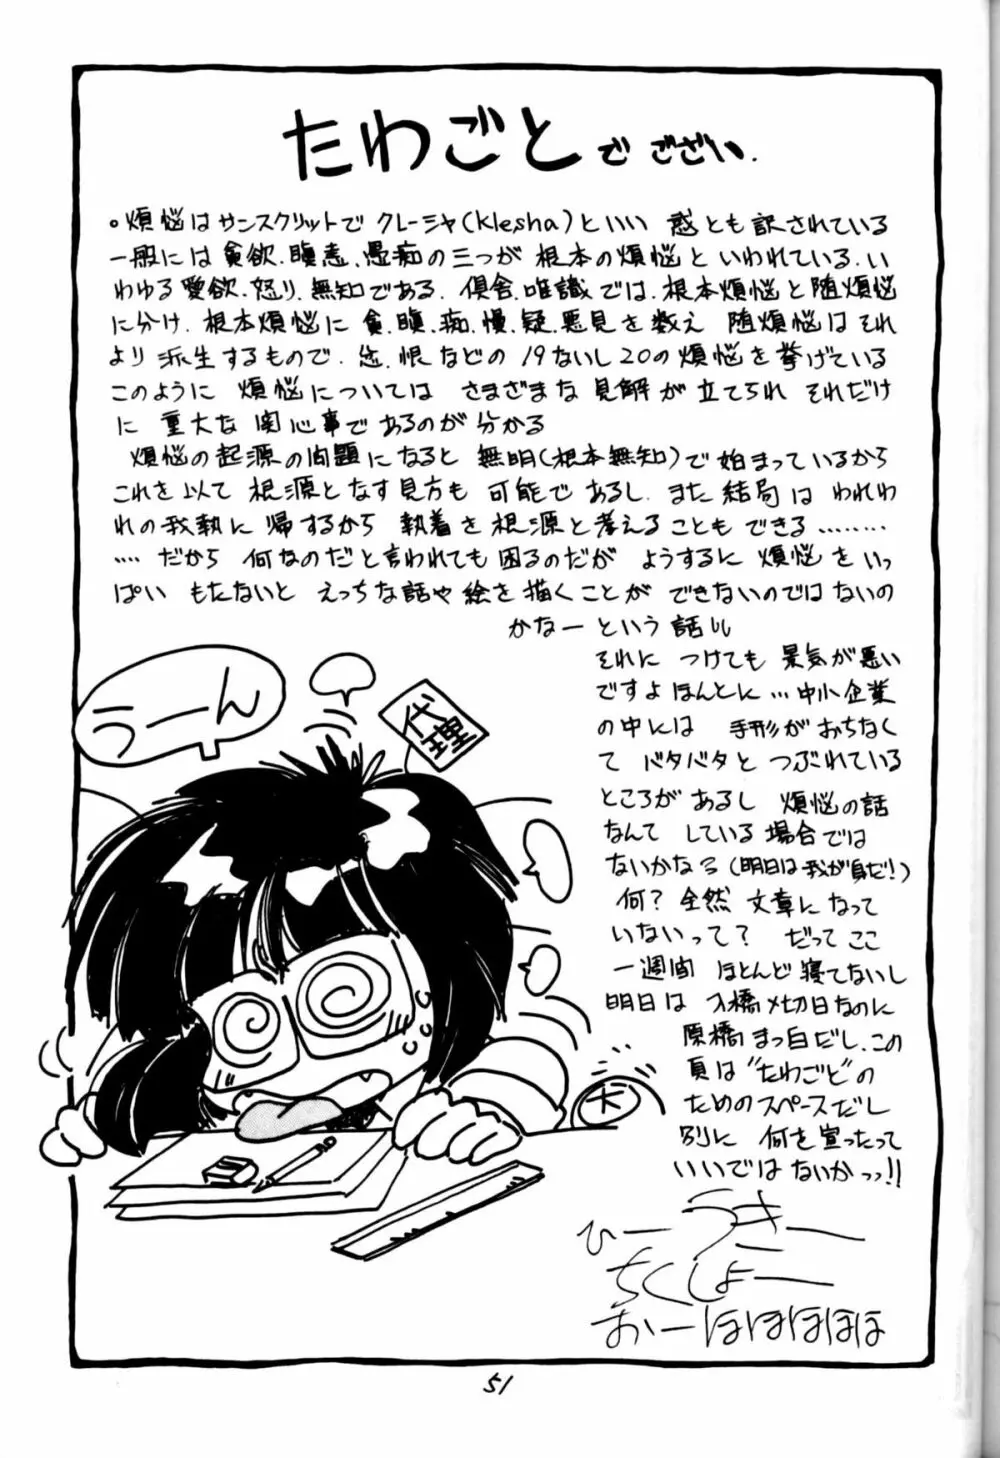 たわごとでございい.
。煩悩はサンスクリットでクレーシャ(Klesha)といい 惑とも訳されている
一般には貪欲.瞋恚.愚痴の三つが 根本の煩悩といわれている.い
わゆる愛欲.怒り.無知である.倶舎.唯識では.根本煩悩と随煩悩
に分け.根本煩悩に 貪.瞋.痴.慢.疑.悪見を数え 随煩悩はそれ
より派生するもので. 恨などの 19ないし20の煩悩を挙げている
このように 煩悩については さまざまな見解が立てられ それだけ
に 重大な関心事であるのが分かる
煩悩の起源の問題になると 無明(根本無知)で始まっているから
これを以て 根源となす見方も 可能であるし.また結局はわれわ
れの我執に 帰するから 執着を根源と考えることもできる………
…‥だから 何なのだと言われても困るのだが ようするに 煩悩をいっ
ぱい もたないと えっちな話や絵を描くことが できないのではないの
かなーという話
それに つけても 景気が悪い
ですよほんとに…中小企業
の中には 手形がおちなく
て バタバタと つぶれている
ところが あるし 煩悩の話
なんて している場合では
ないかなろ(明日は我が身だ!)
何? 全然 文章になって
いないって? だって ここ
一週間 ほとんど寝てないし
明日は 入稿〆切日なのに
原稿まっ白だし、この
頁は"たわごと"の
ためのスペースだし
別に 何を宣ったって
いいではないかっっ!!
うーん
代理
大
ひーうきー
ちくしょー
おーほほほほほ
51